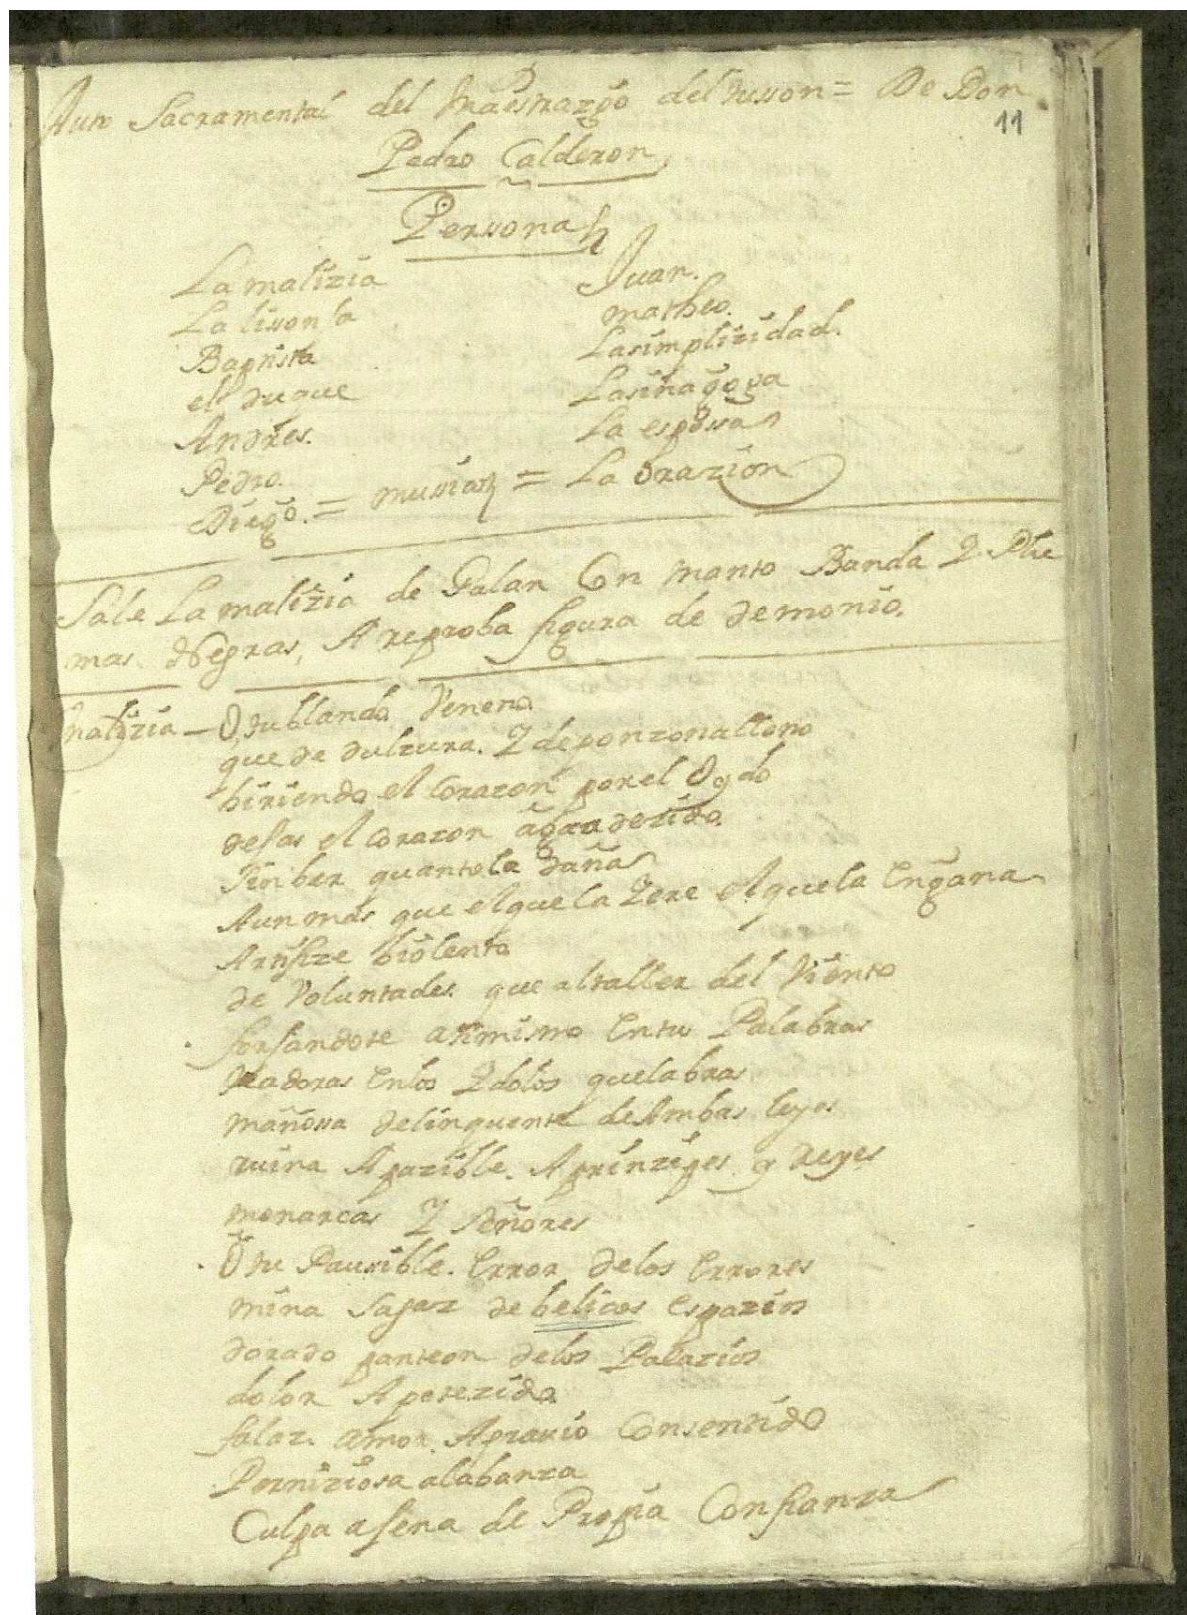 Auto Sacramental del Maestrazgo del tusson = De Don
11
Pedro Calderon
Personas
La malizia
La lisonja
Baptista
el duque
Andres.
Pedro.
Diego. = mussica = La Orazion
Juan.
matheo.
La simplizidad.
La sinagoga
La espossa
Sale La malizia de Galan Con manto Banda Y Plu
mas Negras, A reproba figura de demonio.
malizia - O, tu blando Veneno
que de dulzura. Y de ponzona lleno
hiriendo el Corazon por el Oydo
dejas el corazon agradezido.
Sin ber quanto le daña
Aun mas que el que la Yere el que la Engaña
Artifize biolento
de Voluntades. que al taller del Viento
forjandote a ti mismo En tu Palabras
Ydadoras En los Ydolos que labras
mañossa delinquente de Ambas leyes
ruina Apazible. A prinzipes y Reyes
monarcas Y señores
O tu Paussible. Error de los Errores
mina Sagaz de belicos Espazios
dorado panteon de los Palazios
dolor Apetezido
falaz. amor. Agrauio Consentido
Perniziosa alabanza
Culpa ajena de Propia Confianza